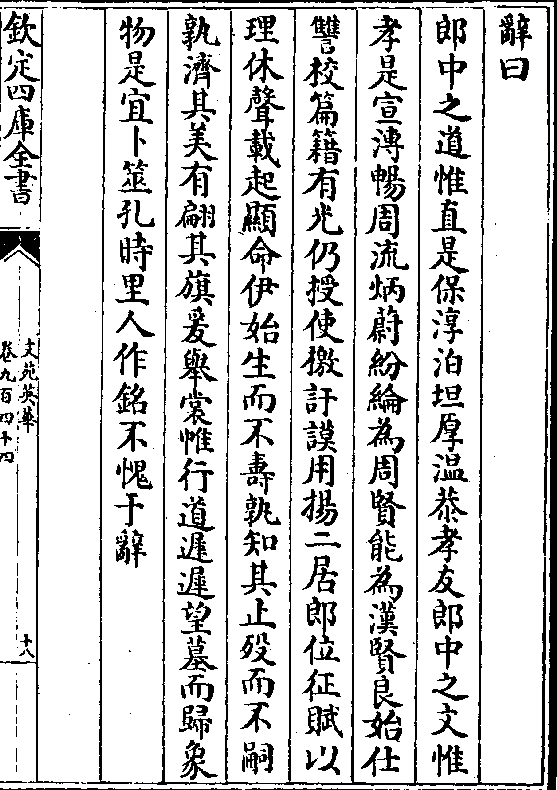 辭曰
郎中之道惟直是保淳泊坦厚温恭孝友郎中之文惟
孝是宣溥暢周流炳蔚紛綸為周賢能為漢賢良始仕
讐校篇籍有光仍授使檄訏謨用揚二居郎位征賦以
理休聲載起顯命伊始生而不壽孰知其止殁而不嗣
孰濟其美有翩其旗爰舉裳帷行道遲遲望墓而歸象
物是宜卜筮孔時里人作銘不愧于辭
欽定四庫全書
文苑英華
卷九百四十四
十八